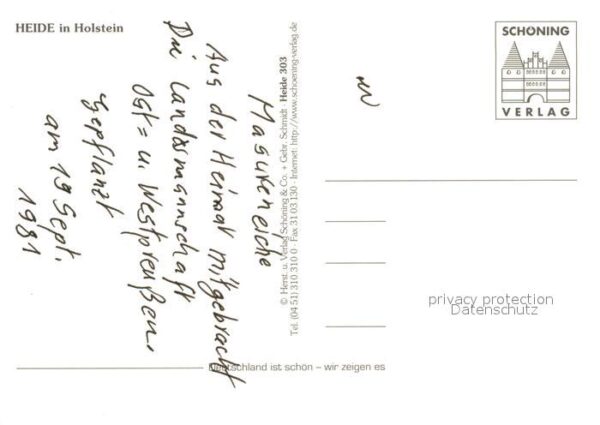 HEIDE in Holstein
Masureneiche
Aus der Heimat mitgebracht
Die Landsmannschaft
Ost= u. Westpreußen
Gepflanzt
am 19 Sept.
1981
© Herst. u. Verlag Schöning & Co. + Gebr. Schmidt · Heide 303
Tel. (04 51) 310 310 0 · Fax 31 03 130 · Internet: http://www.schoening-verlag.de
Deutschland ist schön – wir zeigen es
SCHÖNING
VERLAG
privacy protection
Datenschutz